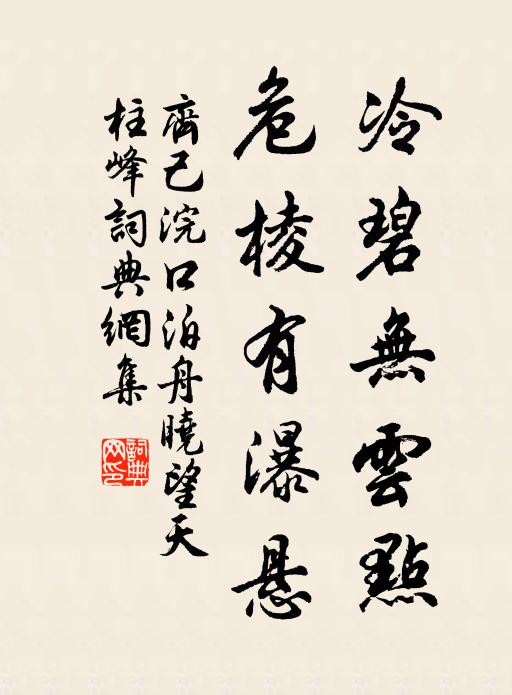 冷碧無雲點
危棱有瀑悬
齊己浣口泊舟曉望天
柱峰詞典網集
詞典網印